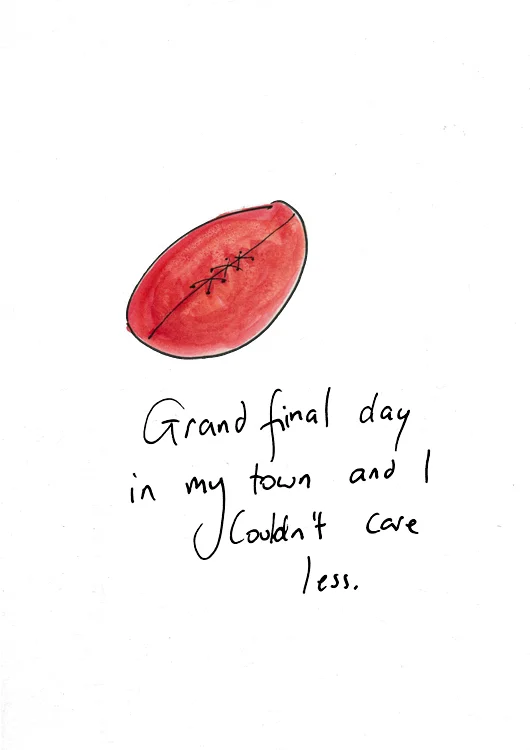 Grand final day
in my town and I
Couldn't care
less.